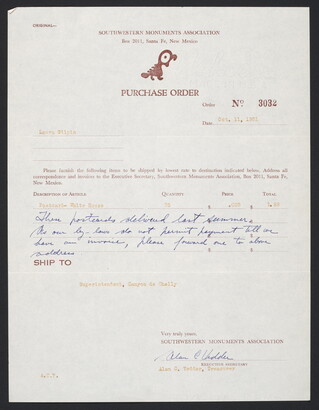 ORIGINAL—
SOUTHWESTERN MONUMENTS ASSOCIATION
Box 2011, Santa Fe, New Mexico
PURCHASE ORDER
Order Nº 3032
Date. Oct. 11, 1961
Please furnish the following items to be shipped by lowest rate to destination indicated below. Address all
correspondence and invoices to the Executive Secretary, Southwestern Monuments Association, Box 2011, Santa Fe,
New Mexico.
DESCRIPTION OF ARTICLE QUANTITY PRICE TOTAL
Postcard- White House
These postcards delivered last summer.
As our by-laws do not permit payment till we
have an invoice, please forward one to above
address
SHIP TO
Superintendent, Canyon de Chelly
Very truly yours,
SOUTHWESTERN MONUMENTS ASSOCIATION
Alan C Vedder
EXECUTIVE SECRETARY
Alan C. Vedder, Treasurer